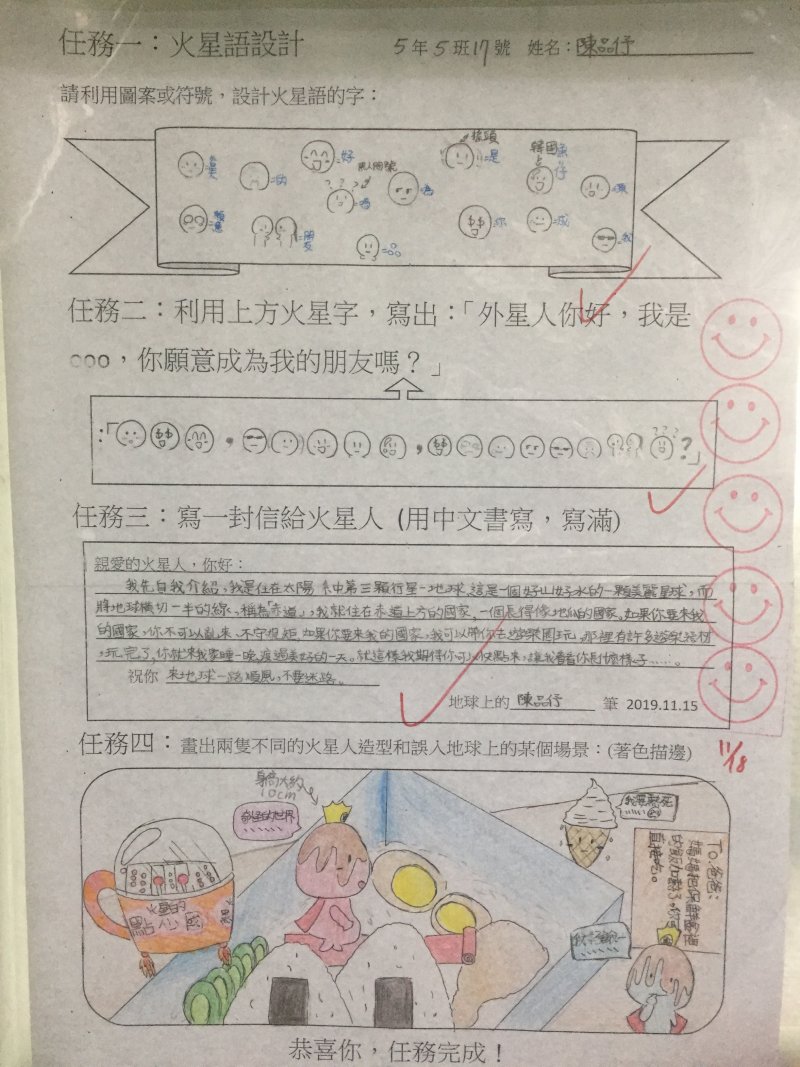 任務一：火星語設計
5年5班17號 姓名：陳品伃
請利用圖案或符號，設計火星語的字：
搖頭
韓国
=好
=是
=的
=嗎
=願意
=朋友
=你
=成
=我
=ooo
任務二：利用上方火星字，寫出：「外星人你好，我是
ooo，你願意成為我的朋友嗎？」
：「，，？」
任務三：寫一封信給火星人 (用中文書寫，寫滿)
親愛的火星人，你好：
我先自我介紹，我是住在太陽系中第三顆行星-地球，這是一個好山好水的一顆美麗星球，而
將地球橫切一半的線，稱為「赤道」，我就住在赤道上方的國家，一個長得像地瓜的國家。如果你要來我
的國家，你不可以亂來、不守規矩。如果你要來我的國家，我可以帶你去遊樂園玩，那裡有許多遊樂器材
，玩完了，你就來我家睡一晚，渡過美好的一天。就這樣我期待你可以快點來，讓我看看你長什麼樣子……。
祝你 來地球一路順風，不要迷路。
地球上的 陳品伃 筆 2019.11.15
11/18
任務四：畫出兩隻不同的火星人造型和誤入地球上的某個場景：(著色描邊)
身高大約
10cm
奇怪的世界
火星的
點心 
To.爸爸：
媽媽把保鮮盒裡
的飯加熱了，你可
直接吃。
恭喜你，任務完成！